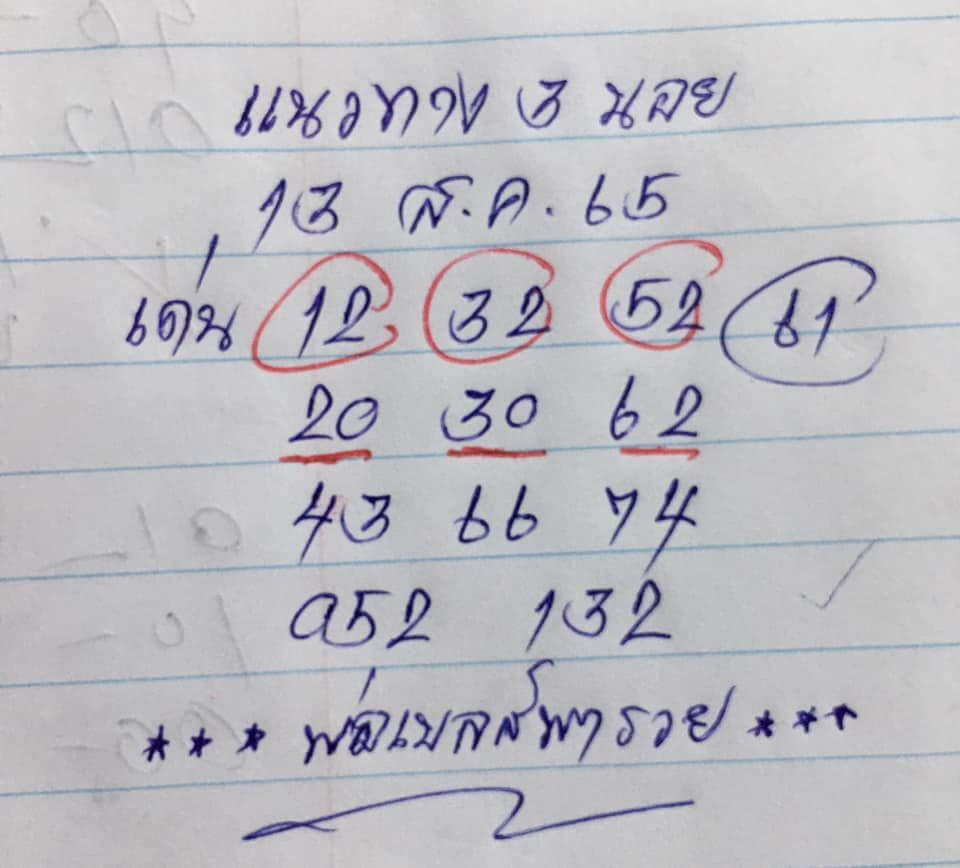 แนวทาง 3 นอย
13 ส.ค. 65
เด่น 12 32 52 61
20 30 62
43 66 74
952 132
*** พ่อเบลล์พารวย ***